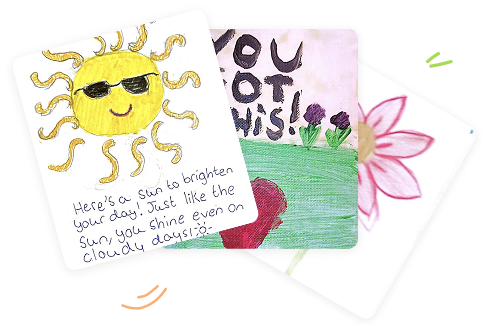 Here's a sun to brighten
your day! Just like the
Sun, you shine even on
cloudy days!
YOU
GOT
THIS!